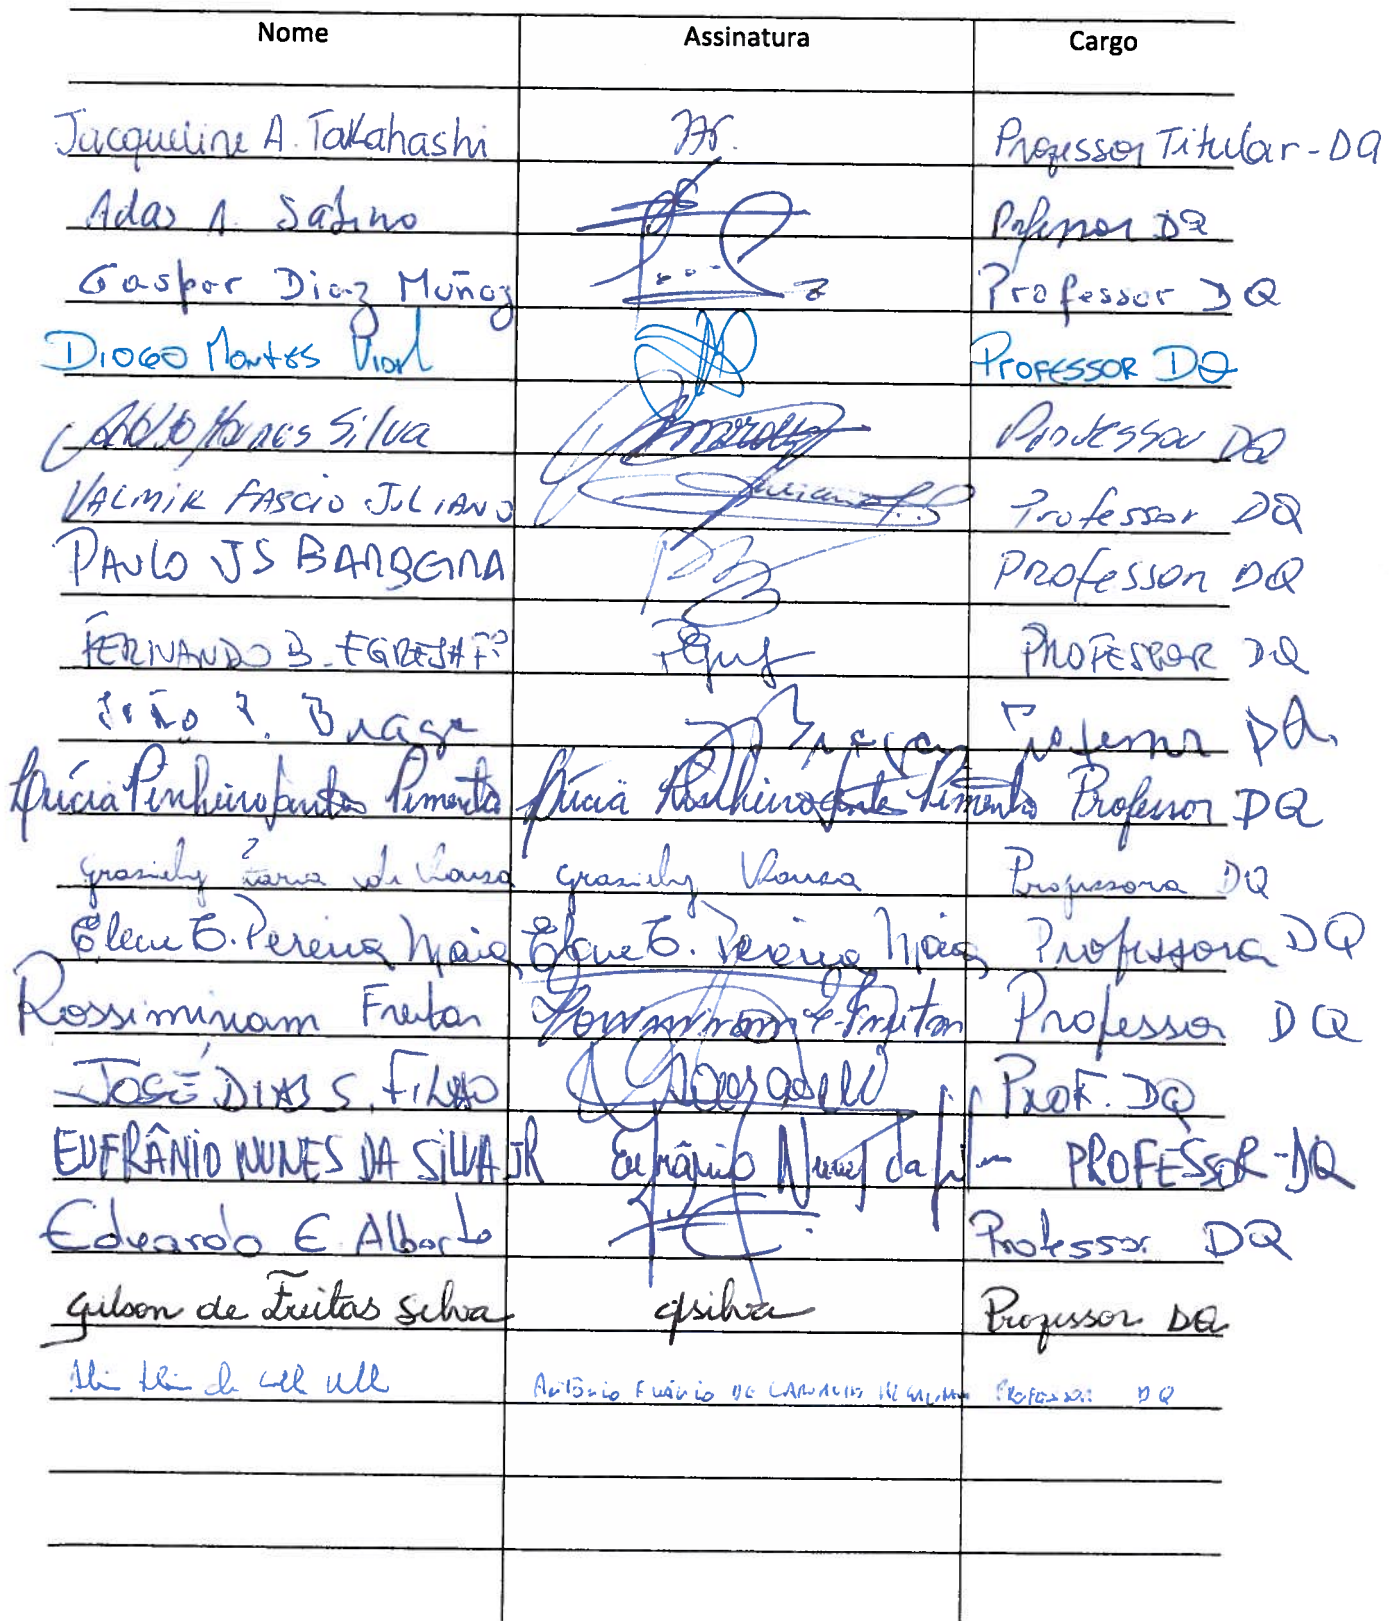 Nome Assinatura Cargo
Jacqueline A. Takahashi Professor Titular - DQ
Adao A. Sabino Professor DQ
Gaspar Diaz Muñoz Professor DQ
DIOGO MONTES Professor DQ
Silva Professor DQ
VALMIR FASCIO JULIANO Professor DQ
PAULO JS BARBEIRA Professor DQ
FERNANDO B. EGREJA Fº PROFESSOR DQ
João P. Braga Braga Professor DQ.
Lúcia Pinheiro Santos Pimenta Lúcia Pinheiro Santos Pimenta Professor DQ
Grasiely Faria de Sousa Grasiely Sousa Professora DQ
Elene C. Pereira Maia Elene C. Pereira Maia Professora DQ
Rossimiriam Freitas Rossimiriam P. Freitas Professor DQ
JOSÉ DIAS S. FILHO PROF. DQ
EUFRÂNIO NUNES DA SILVA JR Eufrânio Nunes da PROFESSOR - DQ
Eduardo E. Alberto Professor DQ
Gilson de Freitas Silva gfsilva Professor DQ
ANTÔNIO FLÁVIO DE CARVALHO PROFESSOR DQ